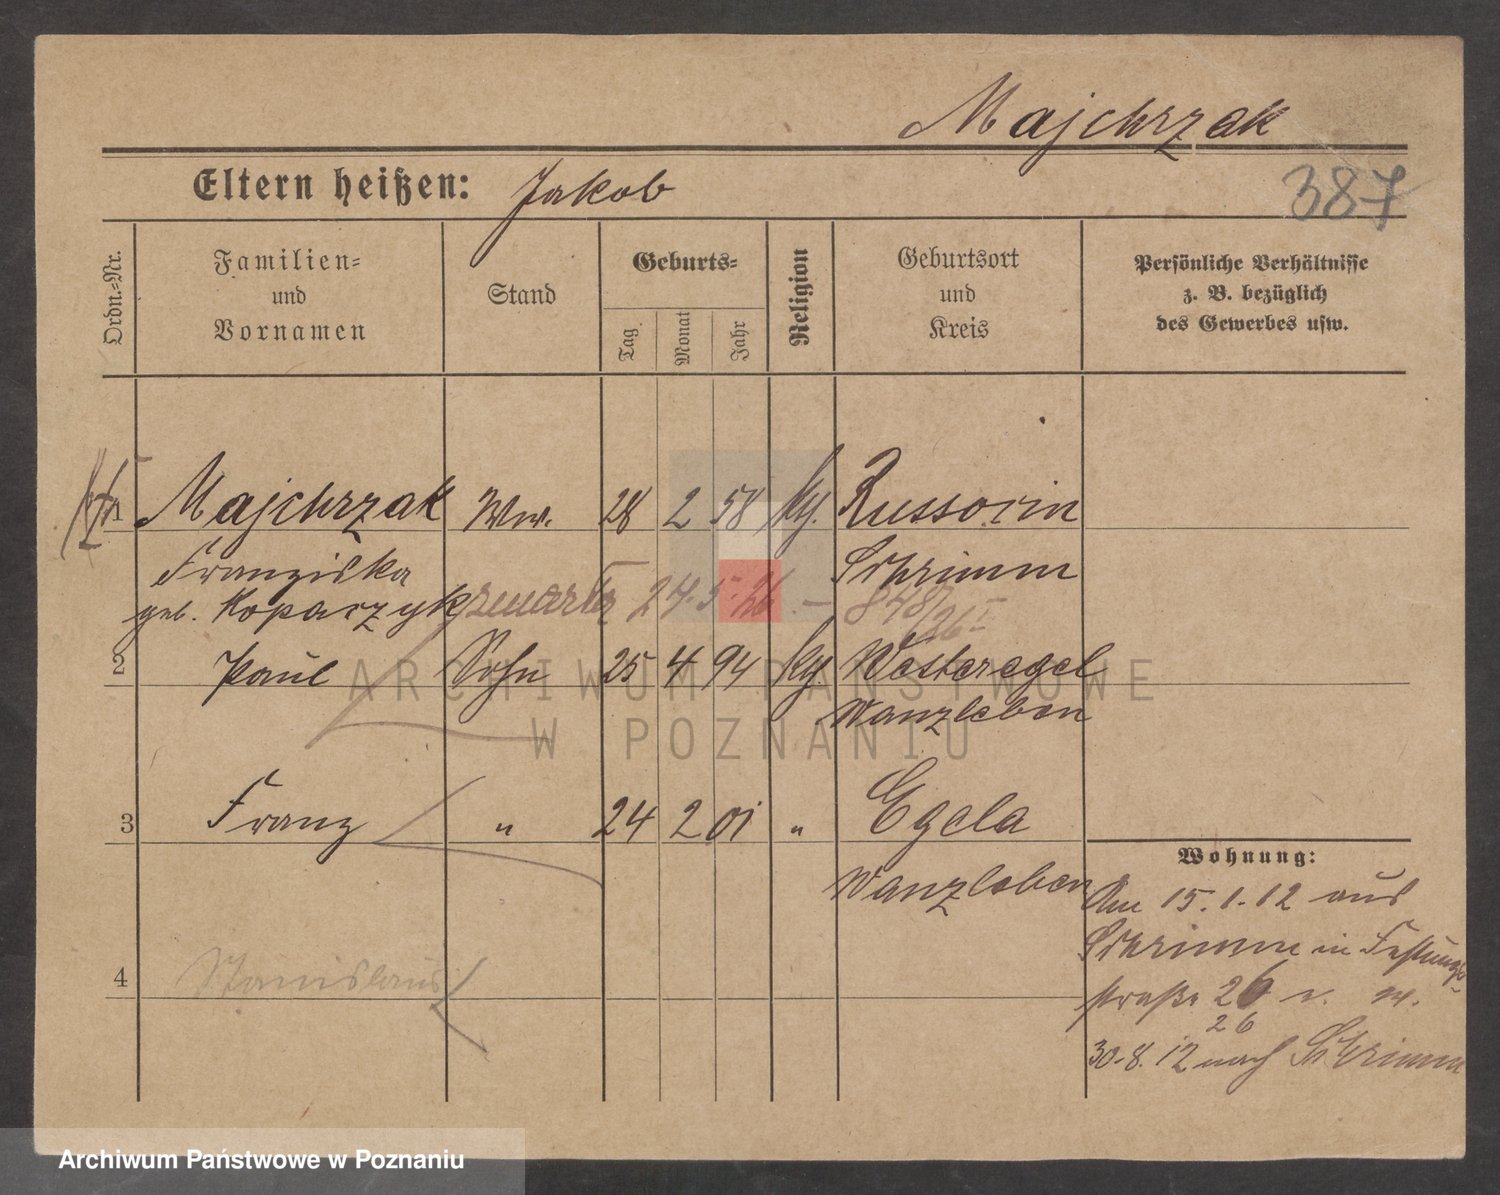 Majchrzak
387
Eltern heißen: Jakob
Ordn.-Nr.
Familien-
und
Vornamen
Stand
Geburts-
Tag
Monat
Jahr
Religion
Geburtsort
und
Kreis
Persönliche Verhältnisse
z. B. bezüglich
des Gewerbes usw.
1 Majchrzak Ww. 28 2 58 kg. Russocin
Franziska Schrimm
geb. Kopaczyk zmarła 24.5.26. – 848/26
2 Paul Sohn 25 4 94 kg. Westeregel
Wanzleben
3 Franz " 24 2 01 " Egeln
Wanzleben
4 Stanislaus
Wohnung:
Am 15.1.12 aus
Schrimm in Festungs-
straße 26
26
30.8.12 nach Schrimm
ARCHIWUM PAŃSTWOWE
W POZNANIU
Archiwum Państwowe w Poznaniu